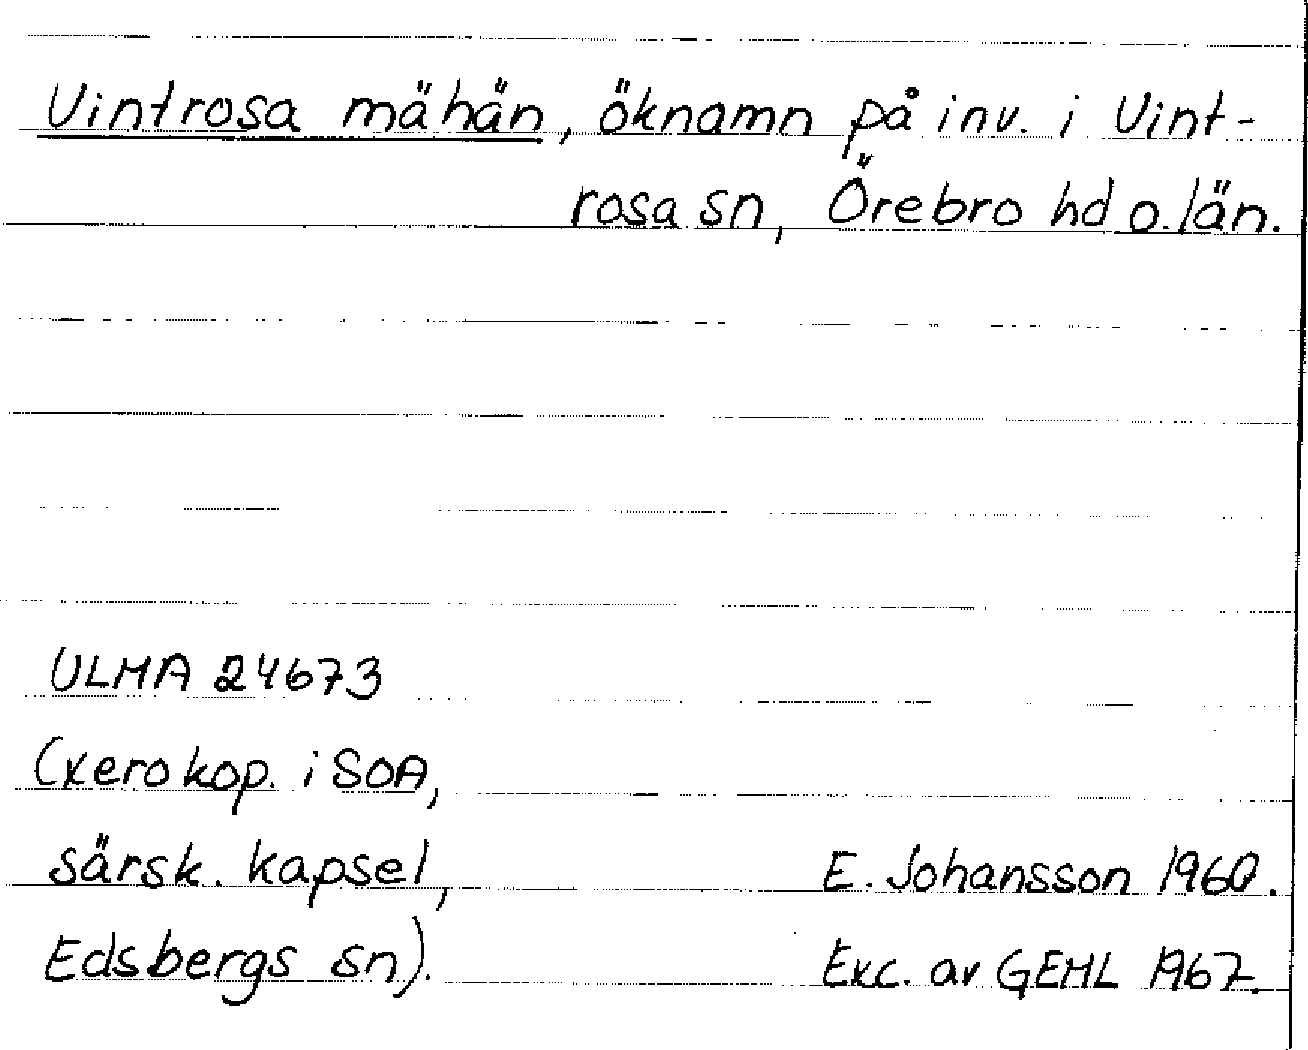 Vintrosa mähän, öknamn på inv. i Vint-
rosa sn, Örebro hd o. län.
ULMA 24673
(xerokop. i SOA,
särsk. kapsel,
Edsbergs sn).
E. Johansson 1960.
Exc. av GEHL 1967.